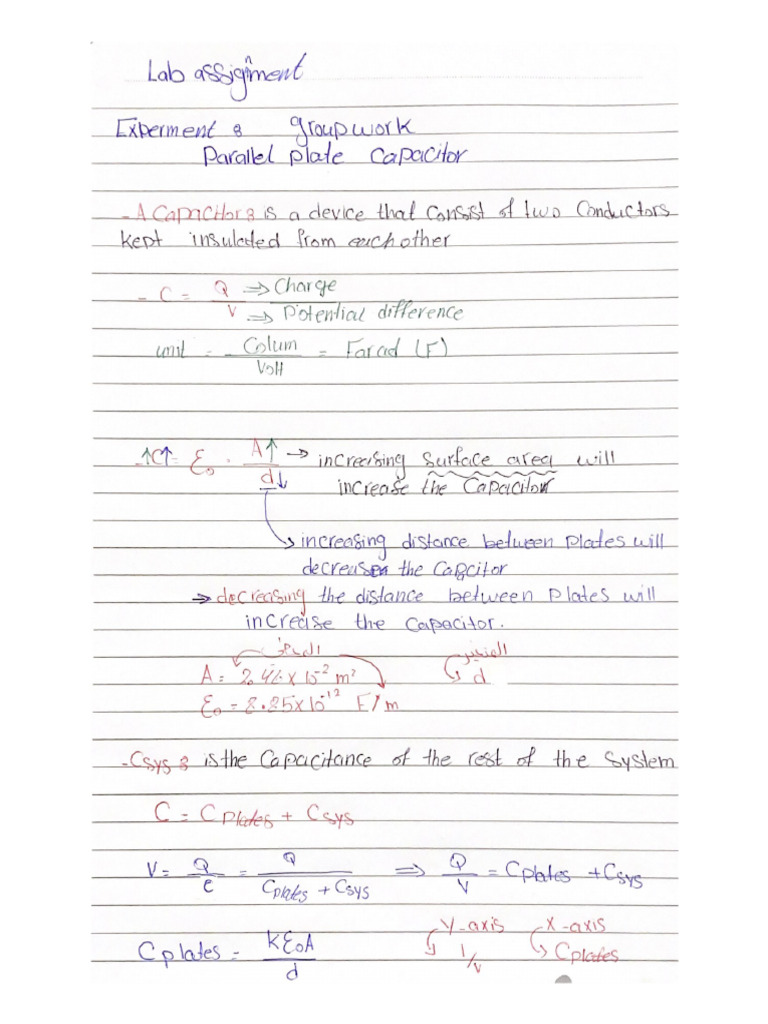 Lab assignment
Experment 8 groupwork
Parallel plate capacitor
- A Capacitor 8 is a device that consist of two Conductors
kept insulated from each other
- C = Q/V ⇒ Charge
⇒ Potential difference
unit = Colum/Volt = Farad (F)
↑C↑ = ε₀ · A↑/d↓ → increasing surface area will
increase the Capacitor
↳ increasing distance between plates will
decrease the Capcitor
→ decreasing the distance between Plates will
increase the Capacitor.
المتغير
A = 2.46 x 10⁻² m² d
ε₀ = 8.85x10⁻¹² F/m
- Csys 8 is the Capacitance of the rest of the System
C = Cplates + Csys
V = Q/c = Q/(Cplates + Csys) ⇒ Q/V = Cplates + Csys
y-axis x-axis
Cplates = kε₀A/d 1/v Cplates